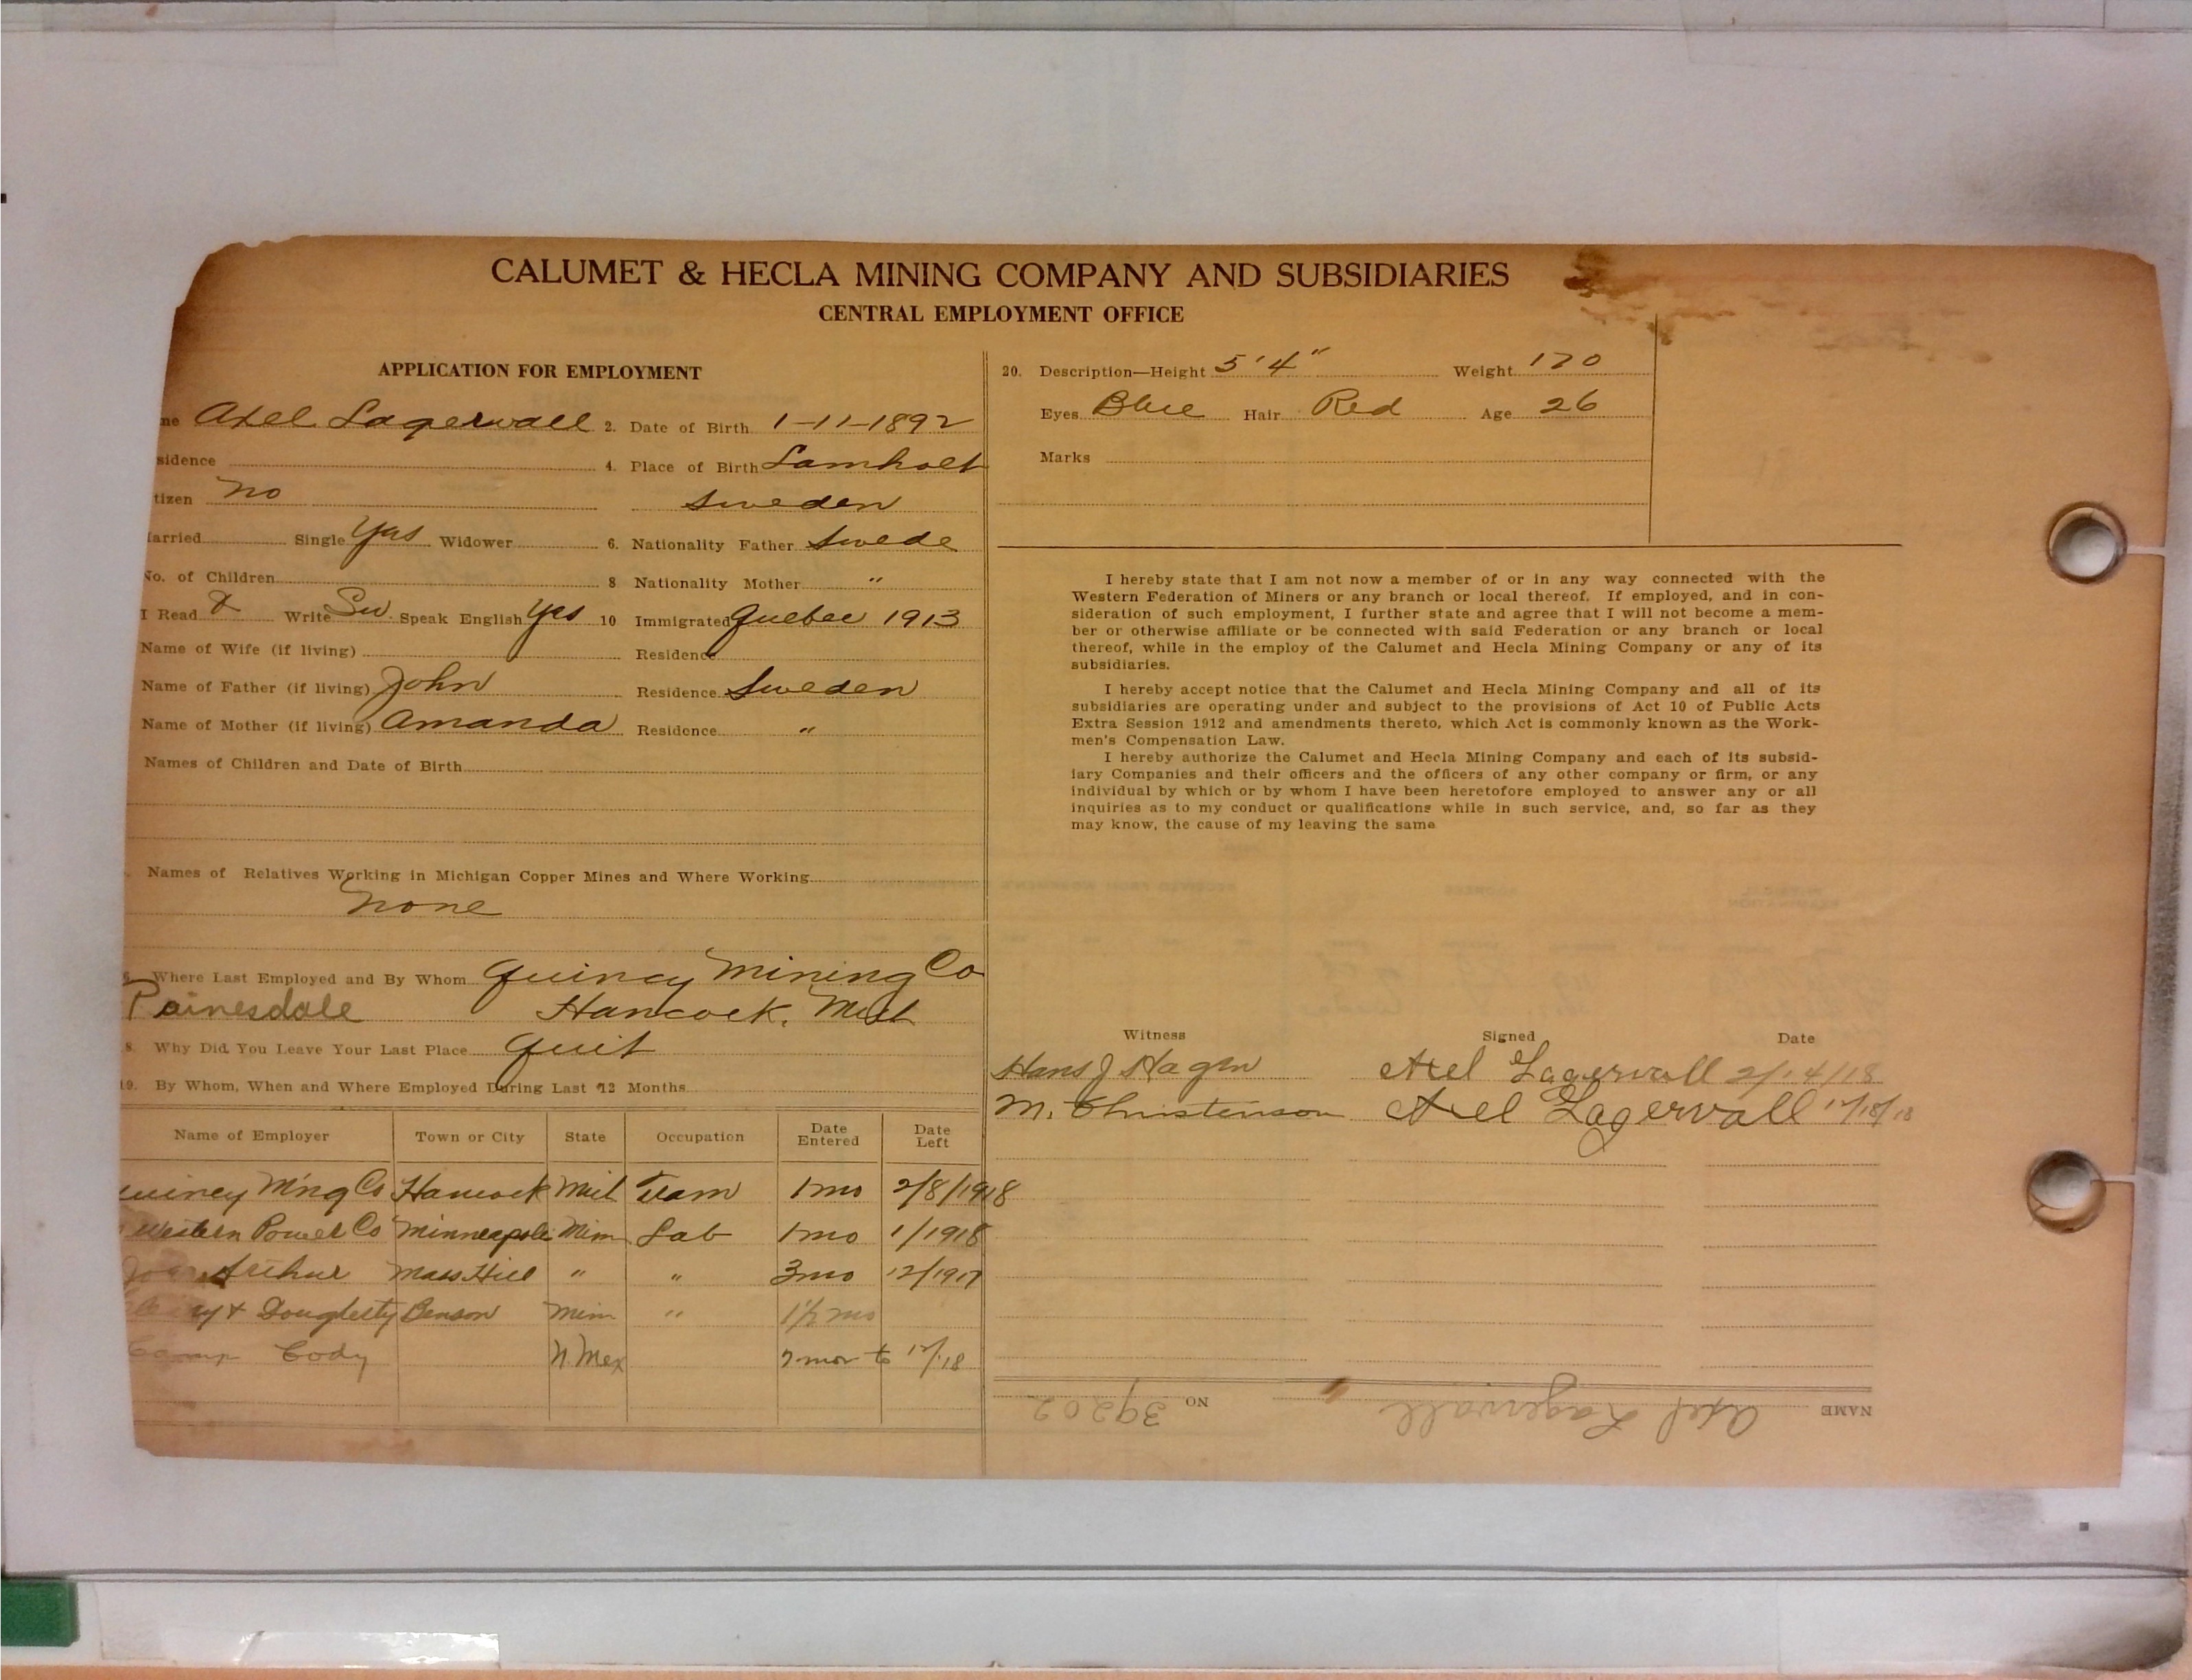 CALUMET & HECLA MINING COMPANY AND SUBSIDIARIES
CENTRAL EMPLOYMENT OFFICE
APPLICATION FOR EMPLOYMENT
me Axel Lagerwall 2. Date of Birth 1-11-1892
sidence 4. Place of Birth Lamholt
tizen no Sweden
arried Single Yes Widower 6. Nationality Father Swede
No. of Children 8 Nationality Mother "
I Read & Write Sw. Speak English Yes 10 Immigrated Quebec 1913
Name of Wife (if living) Residence
Name of Father (if living) John Residence Sweden
Name of Mother (if living) Amanda Residence "
Names of Children and Date of Birth
Names of Relatives Working in Michigan Copper Mines and Where Working
None
Where Last Employed and By Whom Quincy Mining Co
Painesdale Hancock, Mich
8. Why Did You Leave Your Last Place Quit
19. By Whom, When and Where Employed During Last 12 Months
Name of Employer Town or City State Occupation Date Entered Date Left
uincy M'ng Co Hancock Mich Tram 1 mo 2/8/1918
Western Power Co Minneapolis Minn Lab 1 mo 1/1918
Arthur Mass Hill " " 3 mo 12/1917
y & Dougherty Benson Minn " 1½ mo
Camp Cody N. Mex 7 mos to 12/18
20. Description—Height 5' 4" Weight 170
Eyes Blue Hair Red Age 26
Marks
I hereby state that I am not now a member of or in any way connected with the
Western Federation of Miners or any branch or local thereof. If employed, and in con-
sideration of such employment, I further state and agree that I will not become a mem-
ber or otherwise affiliate or be connected with said Federation or any branch or local
thereof, while in the employ of the Calumet and Hecla Mining Company or any of its
subsidiaries.
I hereby accept notice that the Calumet and Hecla Mining Company and all of its
subsidiaries are operating under and subject to the provisions of Act 10 of Public Acts
Extra Session 1912 and amendments thereto, which Act is commonly known as the Work-
men's Compensation Law.
I hereby authorize the Calumet and Hecla Mining Company and each of its subsid-
iary Companies and their officers and the officers of any other company or firm, or any
individual by which or by whom I have been heretofore employed to answer any or all
inquiries as to my conduct or qualifications while in such service, and, so far as they
may know, the cause of my leaving the same
Witness Signed Date
Hans J Hagen Axel Lagervall 2/14/18
M. Christenson Axel Lagervall 12/18/18
NAME Axel Lagerwall NO 39202